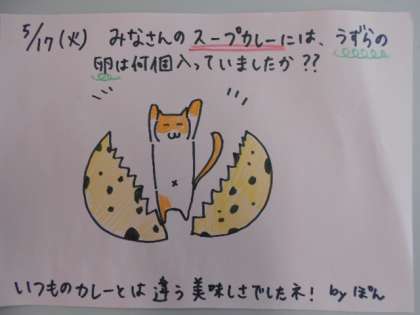 5/17(火) みなさんのスープカレーには、うずらの
卵は何個入っていましたか??
いつものカレーとは違う美味しさでしたネ! by ぽん